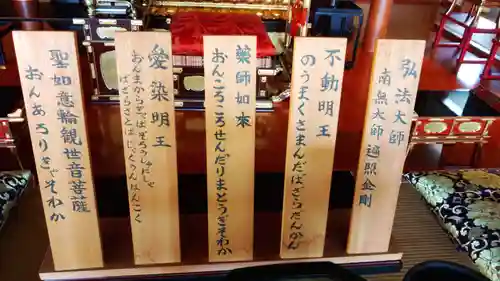 弘法大師
南無大師遍照金剛
不動明王
のうまくさまんだばざらだんかん
薬師如来
おんころころせんだりまとうぎそわか
愛染明王
ばざらさとばじゃくうんばんこく
聖如意輪観世音菩薩
おんあろりきゃそわか